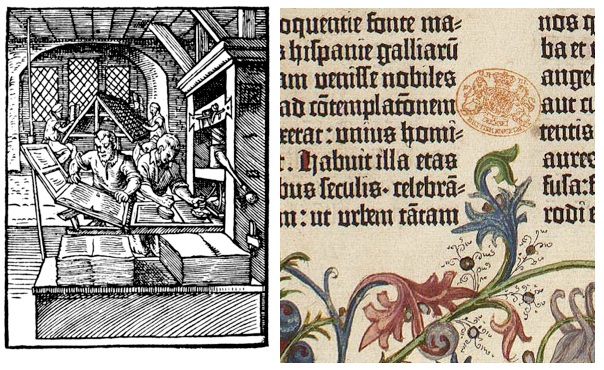 oquentie fonte ma=
s hispanie galliarū
am venisse nobiles
ad cōtemplatōnem
xerat: unius homi=
t. Habuit illa etas
bus seculis. celebrā=
m: ut urbem tātam
nos q
ba et
angel
aut cu
tentis
aures
fusa:
rodi e